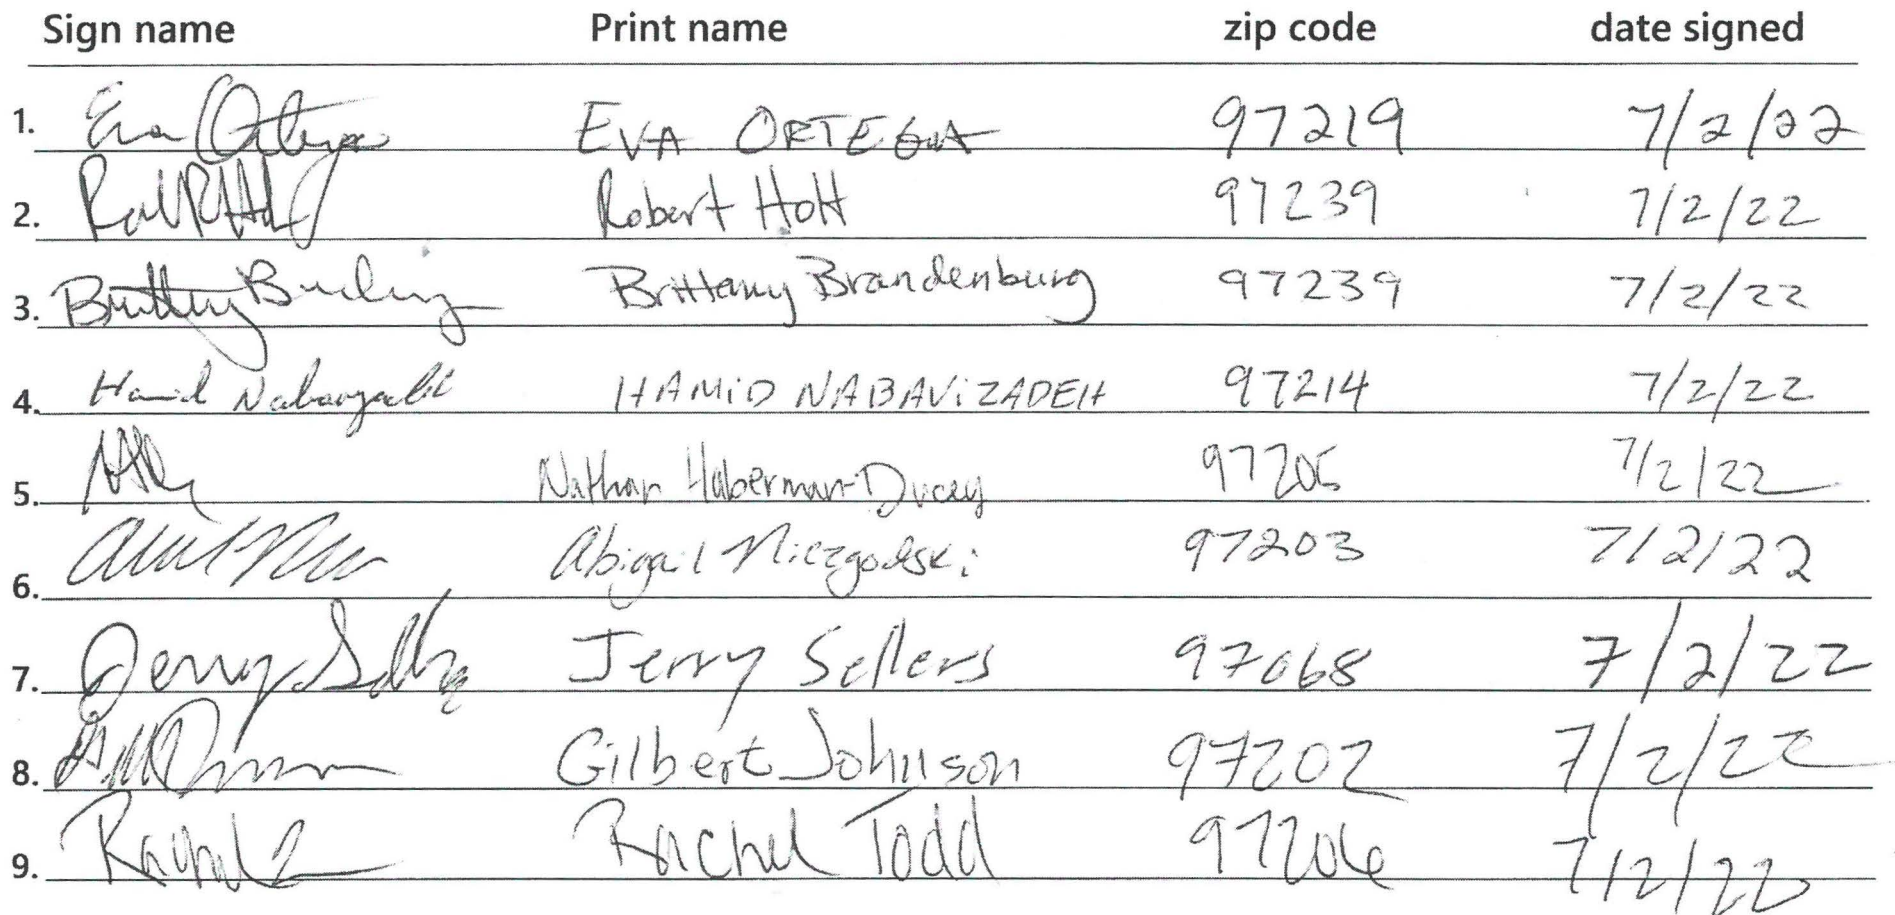 Sign name Print name zip code date signed
1. Eva Ortega EVA ORTEGA 97219 7/2/22
2. Robert Holt 97239 7/2/22
3. Brittany Brandenburg 97239 7/2/22
4. Hamid HAMID NABAVIZADEH 97214 7/2/22
5. Nathan Haberman-Ducey 97205 7/2/22
6. Abigail Niezgodski 97203 7/2/22
7. Jerry Sellers Jerry Sellers 97068 7/2/22
8. Gilbert Johnson 97202 7/2/22
9. Rachel Rachel Todd 97206 7/2/22